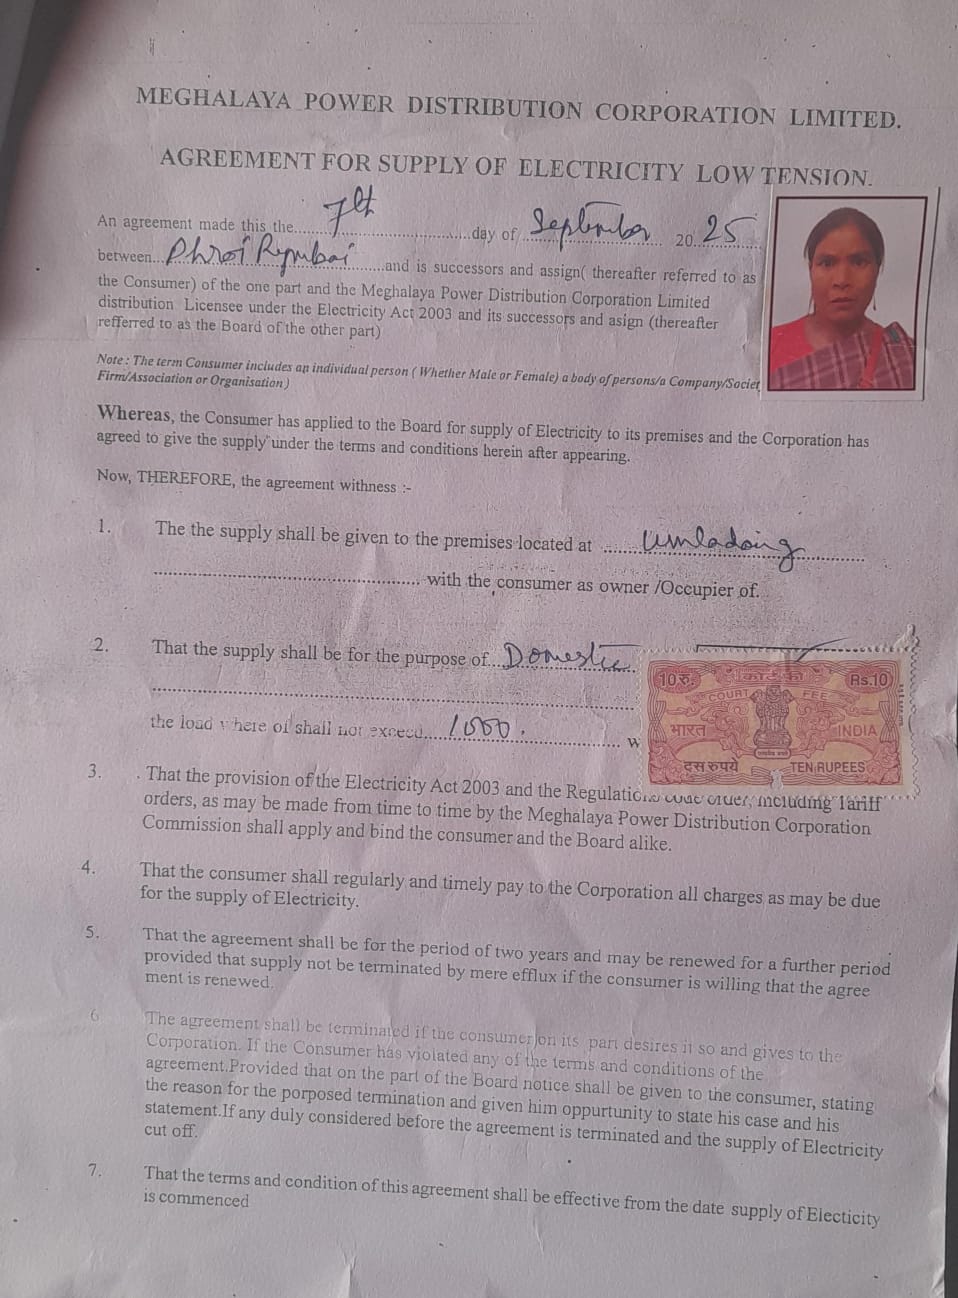 MEGHALAYA POWER DISTRIBUTION CORPORATION LIMITED.
AGREEMENT FOR SUPPLY OF ELECTRICITY LOW TENSION.
An agreement made this the........7th............................day of ..September.. 20..25......
between...Dhroi Rymbai........and is successors and assign( thereafter referred to as
the Consumer) of the one part and the Meghalaya Power Distribution Corporation Limited
distribution Licensee under the Electricity Act 2003 and its successors and asign (thereafter
refferred to as the Board of the other part)
Note : The term Consumer includes an individual person ( Whether Male or Female) a body of persons/a Company/Societ
Firm/Association or Organisation )
Whereas, the Consumer has applied to the Board for supply of Electricity to its premises and the Corporation has
agreed to give the supply under the terms and conditions herein after appearing.
Now, THEREFORE, the agreement withness :-
1. The the supply shall be given to the premises located at ........Umladoing..............
.................................................... with the consumer as owner /Occupier of.
2. That the supply shall be for the purpose of...Domestic
the load where of shall not exceed.....1000.................... w
10रु. कोर्ट फी Rs.10
COURT FEE
भारत INDIA
दस रुपये TEN RUPEES
3. . That the provision of the Electricity Act 2003 and the Regulations code order, including Tariff
orders, as may be made from time to time by the Meghalaya Power Distribution Corporation
Commission shall apply and bind the consumer and the Board alike.
4. That the consumer shall regularly and timely pay to the Corporation all charges as may be due
for the supply of Electricity.
5. That the agreement shall be for the period of two years and may be renewed for a further period
provided that supply not be terminated by mere efflux if the consumer is willing that the agree
ment is renewed.
6 The agreement shall be terminated if the consumer on its part desires it so and gives to the
Corporation. If the Consumer has violated any of the terms and conditions of the
agreement.Provided that on the part of the Board notice shall be given to the consumer, stating
the reason for the porposed termination and given him oppurtunity to state his case and his
statement.If any duly considered before the agreement is terminated and the supply of Electricity
cut off.
7. That the terms and condition of this agreement shall be effective from the date supply of Electicity
is commenced